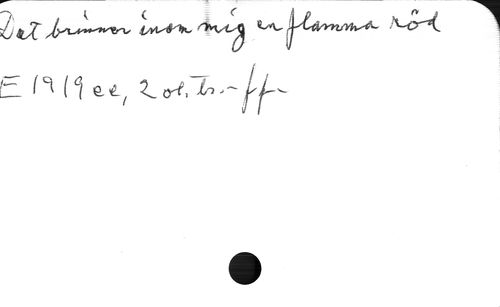 Det brinner inom mig en flamma röd
E 1919 ee, 2 ol. tr. - ff -